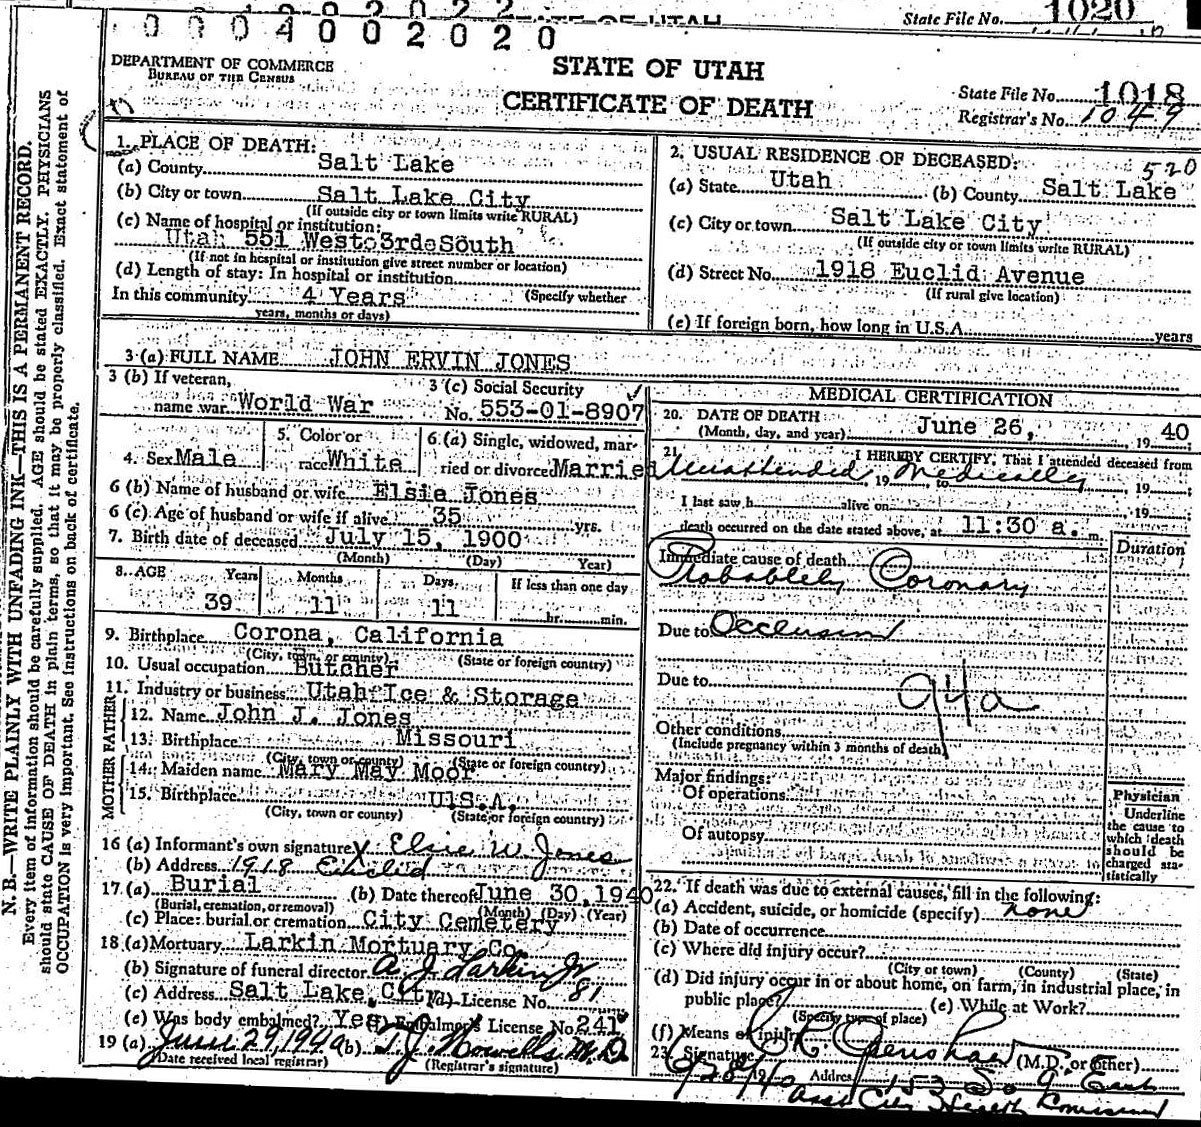 STATE OF UTAH
State File No. 1020
0 0 0 4 0 0 2 0 2 0
DEPARTMENT OF COMMERCE
BUREAU OF THE CENSUS
STATE OF UTAH
CERTIFICATE OF DEATH
State File No. 1018
Registrar's No. 1049
N. B.—WRITE PLAINLY WITH UNFADING INK—THIS IS A PERMANENT RECORD.
Every item of information should be carefully supplied. AGE should be stated EXACTLY. PHYSICIANS
should state CAUSE OF DEATH in plain terms, so that it may be properly classified. Exact statement of
OCCUPATION is very important. See instructions on back of certificate.
1. PLACE OF DEATH:
(a) County Salt Lake
(b) City or town Salt Lake City
(If outside city or town limits write RURAL)
(c) Name of hospital or institution:
Utah 551 West 3rd South
(If not in hospital or institution give street number or location)
(d) Length of stay: In hospital or institution
In this community 4 Years (Specify whether
years, months or days)
2. USUAL RESIDENCE OF DECEASED: 520
(a) State Utah (b) County Salt Lake
(c) City or town Salt Lake City
(If outside city or town limits write RURAL)
(d) Street No. 1918 Euclid Avenue
(If rural give location)
(e) If foreign born, how long in U.S.A. years
3 (a) FULL NAME JOHN ERVIN JONES
3 (b) If veteran,
name war World War
3 (c) Social Security
No. 553-01-8907
4. Sex Male
5. Color or
race White
6 (a) Single, widowed, mar-
ried or divorced Married
6 (b) Name of husband or wife Elsie Jones
6 (c) Age of husband or wife if alive 35 yrs.
7. Birth date of deceased July 15, 1900
(Month) (Day) Year)
8. AGE Years Months Days If less than one day
39 11 11 hr. min.
9. Birthplace Corona, California
(City, town, or county) (State or foreign country)
10. Usual occupation Butcher
11. Industry or business Utah Ice & Storage
FATHER
12. Name John J. Jones
13. Birthplace Missouri
(City, town or county) (State or foreign country)
MOTHER
14. Maiden name Mary May Moor
15. Birthplace U.S.A.
(City, town or county) (State or foreign country)
16 (a) Informant's own signature X Elsie W. Jones
(b) Address 1918 Euclid
17 (a) Burial (b) Date thereof June 30, 1940
(Burial, cremation, or removal) (Month) (Day) (Year)
(c) Place: burial or cremation City Cemetery
18 (a) Mortuary Larkin Mortuary Co
(b) Signature of funeral director A. J. Larkin Jr
(c) Address Salt Lake City (d) License No. 81
(e) Was body embalmed? Yes (f) Embalmer's License No. 241
19 (a) June 29, 1940 (b) T. J. Howells M.D.
(Date received local registrar) (Registrar's signature)
MEDICAL CERTIFICATION
20. DATE OF DEATH
(Month, day, and year) June 26, 19 40
21. I HEREBY CERTIFY, That I attended deceased from
Unattended 19 Medically to , 19 ;
I last saw h alive on , 19 ;
death occurred on the date stated above, at 11:30 a. m.
Immediate cause of death
Probablely Coronary
Due to Occlusion
Due to
94a
Other conditions
(Include pregnancy within 3 months of death)
Major findings:
Of operations
Of autopsy
Duration
Physician
Underline
the cause to
which death
should be
charged sta-
tistically
22. If death was due to external causes, fill in the following:
(a) Accident, suicide, or homicide (specify) none
(b) Date of occurrence
(c) Where did injury occur?
(City or town) (County) (State)
(d) Did injury occur in or about home, on farm, in industrial place, in
public place? (e) While at Work?
(Specify type of place)
(f) Means of injury
23. Signature (M.D. or other)
6/28/40 19 Address 153 So 9 East
Asst City Health